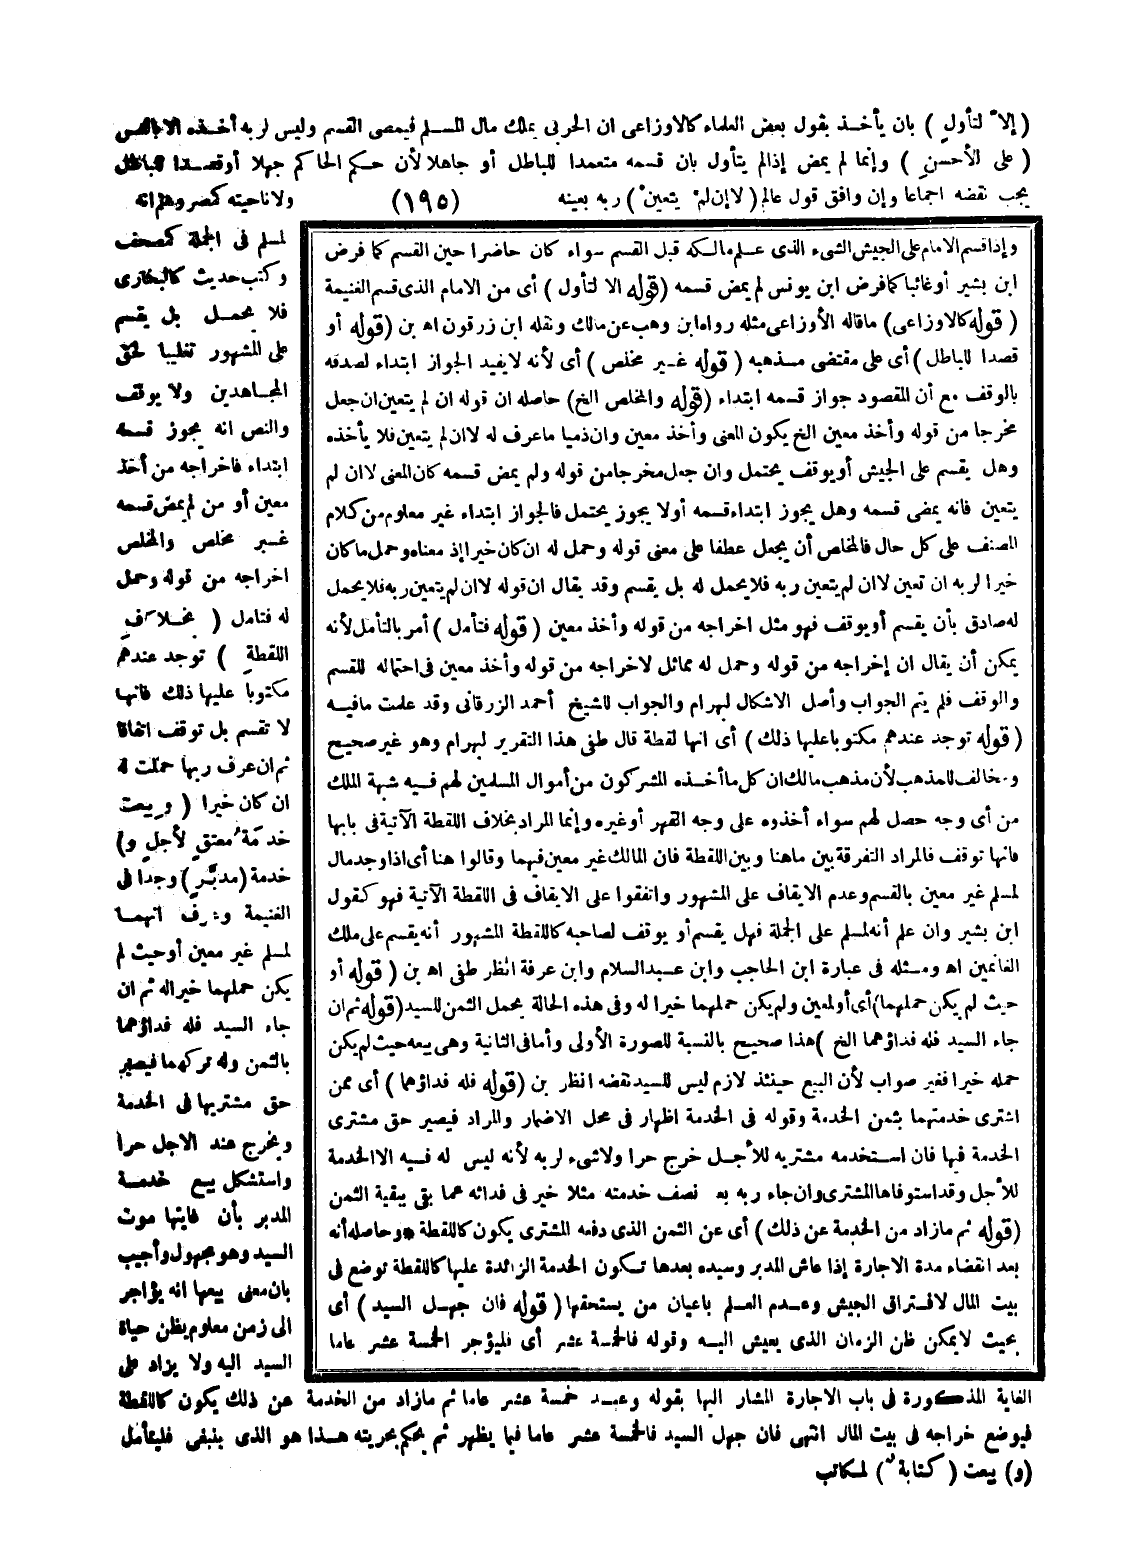 ( إلا لتأول ) بان يأخذ بقول بعض العلماء كالاوزاعى ان الحربى يملك مال المسلم فيمضى القسم وليس لربه أخذه الا بالثمن
( على الأحسن ) وإنما لم يمض إذا لم يتأول بان قسمه متعمدا للباطل أو جاهلا لأن حكم الحاكم جهلا أو قصدا للباطل
يجب نقضه اجماعا وإن وافق قول عالم ( لا إن لم يتعين ) ربه بعينه
(١٩٥)
ولا ناحيته كمصر وعلم انه
لمسلم فى الجملة كمصحف
وكتب حديث كالبخارى
فلا يحمل بل يقسم
على المشهور تغليبا لحق
المجاهدين ولا يوقف
والنص انه يجوز قسمه
ابتداء فاخراجه من أخذ
معين أو من لم يمض قسمه
غير مخلص والمخلص
اخراجه من قوله وحمل
له فتامل ( بخلاف
اللقطة ) توجد عندهم
مكتوبا عليها ذلك فانها
لا تقسم بل توقف اتفاقا
ثم ان عرف ربها حملت له
ان كان خيرا ( وبيعت
خدمة معتق لأجل و)
خدمة (مدبر) وجدا فى
الغنيمة وعرف انهما
لمسلم غير معين أو حيث لم
يكن حملهما خيرا له ثم ان
جاء السيد فله فداؤهما
بالثمن وله تركهما فيصير
حق مشتريها فى الخدمة
ويخرج عند الاجل حرا
واستشكل بيع خدمة
المدبر بأن غايتها موت
السيد وهو مجهول وأجيب
بان معنى بيعها انه يؤاجر
الى زمن معلوم يظن حياة
السيد اليه ولا يزاد على
وإذا قسم الامام على الجيش الشىء الذى علم مالكه قبل القسم سواء كان حاضرا حين القسم كما فرض
ابن بشير أو غائبا كما فرض ابن يونس لم يمض قسمه (قوله الا لتأول ) أى من الامام الذى قسم الغنيمة
( قوله كالاوزاعى ) ما قاله الأوزاعى مثله رواه ابن وهب عن مالك ونقله ابن زرقون اه بن (قوله أو
قصدا للباطل ) أى على مقتضى مذهبه ( قوله غير مخلص ) أى لأنه لا يفيد الجواز ابتداء لصدقه
بالوقف مع أن المقصود جواز قسمه ابتداء (قوله والمخلص الخ) حاصله ان قوله ان لم يتعين ان جعل
مخرجا من قوله وأخذ معين الخ يكون المعنى وأخذ معين وان ذميا ما عرف له لا ان لم يتعين فلا يأخذه
وهل يقسم على الجيش أو يوقف يحتمل وان جعل مخرجا من قوله ولم يمض قسمه كان المعنى لا ان لم
يتعين فانه يمضى قسمه وهل يجوز ابتداء قسمه أو لا يجوز يحتمل فالجواز ابتداء غير معلوم من كلام
المصنف على كل حال فالمخلص أن يجعل عطفا على معنى قوله وحمل له ان كان خيرا إذ معناه وحمل ما كان
خيرا لربه ان تعين لا ان لم يتعين ربه فلا يحمل له بل يقسم وقد يقال ان قوله لا ان لم يتعين ربه فلا يحمل
له صادق بأن يقسم أو يوقف فهو مثل اخراجه من قوله وأخذ معين ( قوله فتأمل ) أمر بالتأمل لأنه
يمكن أن يقال ان إخراجه من قوله وحمل له مماثل لاخراجه من قوله وأخذ معين فى احتماله للقسم
والوقف فلم يتم الجواب وأصل الاشكال لبهرام والجواب للشيخ أحمد الزرقانى وقد علمت ما فيه
( قوله توجد عندهم مكتوبا عليها ذلك ) أى انها لقطة قال طفى هذا التقرير لبهرام وهو غير صحيح
ومخالف للمذهب لأن مذهب مالك ان كل ما أخذه المشركون من أموال المسلمين لهم فيه شبهة الملك
من أى وجه حصل لهم سواء أخذوه على وجه القهر أو غيره وإنما المراد بخلاف اللقطة الآتية فى بابها
فانها توقف فالمراد التفرقة بين ما هنا وبين اللقطة فان المالك غير معين فيهما وقالوا هنا أى اذا وجد مال
لمسلم غير معين بالقسم وعدم الايقاف على المشهور واتفقوا على الايقاف فى اللقطة الآتية فهو كقول
ابن بشير وان علم أنه لمسلم على الجملة فهل يقسم أو يوقف لصاحبه كاللقطة المشهور أنه يقسم على ملك
الغانمين اه ومثله فى عبارة ابن الحاجب وابن عبد السلام وابن عرفة انظر طفى اه بن ( قوله أو
حيث لم يكن حملهما) أى أو لمعين ولم يكن حملهما خيرا له وفى هذه الحالة يحمل الثمن للسيد (قوله ثم ان
جاء السيد فله فداؤهما الخ ) هذا صحيح بالنسبة للصورة الأولى وأما فى الثانية وهى بيعه حيث لم يكن
حمله خيرا فغير صواب لأن البيع حينئذ لازم ليس للسيد نقضه انظر بن (قوله فله فداؤهما ) أى ممن
اشترى خدمتهما بثمن الخدمة وقوله فى الخدمة اظهار فى محل الاضمار والمراد فيصير حق مشترى
الخدمة فيها فان استخدمه مشتريه للأجل خرج حرا ولا شىء لربه لأنه ليس له فيه الا الخدمة
للأجل وقد استوفاها المشترى وان جاء ربه بعد نصف خدمته مثلا خير فى فدائه عما بقى ببقية الثمن
(قوله ثم ما زاد من الخدمة عن ذلك ) أى عن الثمن الذى دفعه المشترى يكون كاللقطة * وحاصله أنه
بعد انقضاء مدة الاجارة إذا عاش المدبر وسيده بعدها تكون الخدمة الزائدة عليها كاللقطة توضع فى
بيت المال لافتراق الجيش وعدم العلم باعيان من يستحقها ( قوله فان جهل السيد ) أى
بحيث لا يمكن ظن الزمان الذى يعيش اليه وقوله فالخمسة عشر أى فليؤجر الخمسة عشر عاما
الغاية المذكورة فى باب الاجارة المشار اليها بقوله وعبد خمسة عشر عاما ثم ما زاد من الخدمة عن ذلك يكون كاللقطة
فيوضع خراجه فى بيت المال انتهى فان جهل السيد فالخمسة عشر عاما فيما يظهر ثم يحكم بحريته هذا هو الذى ينبغى فليتأمل
(و) بيعت ( كتابة ) لمكاتب